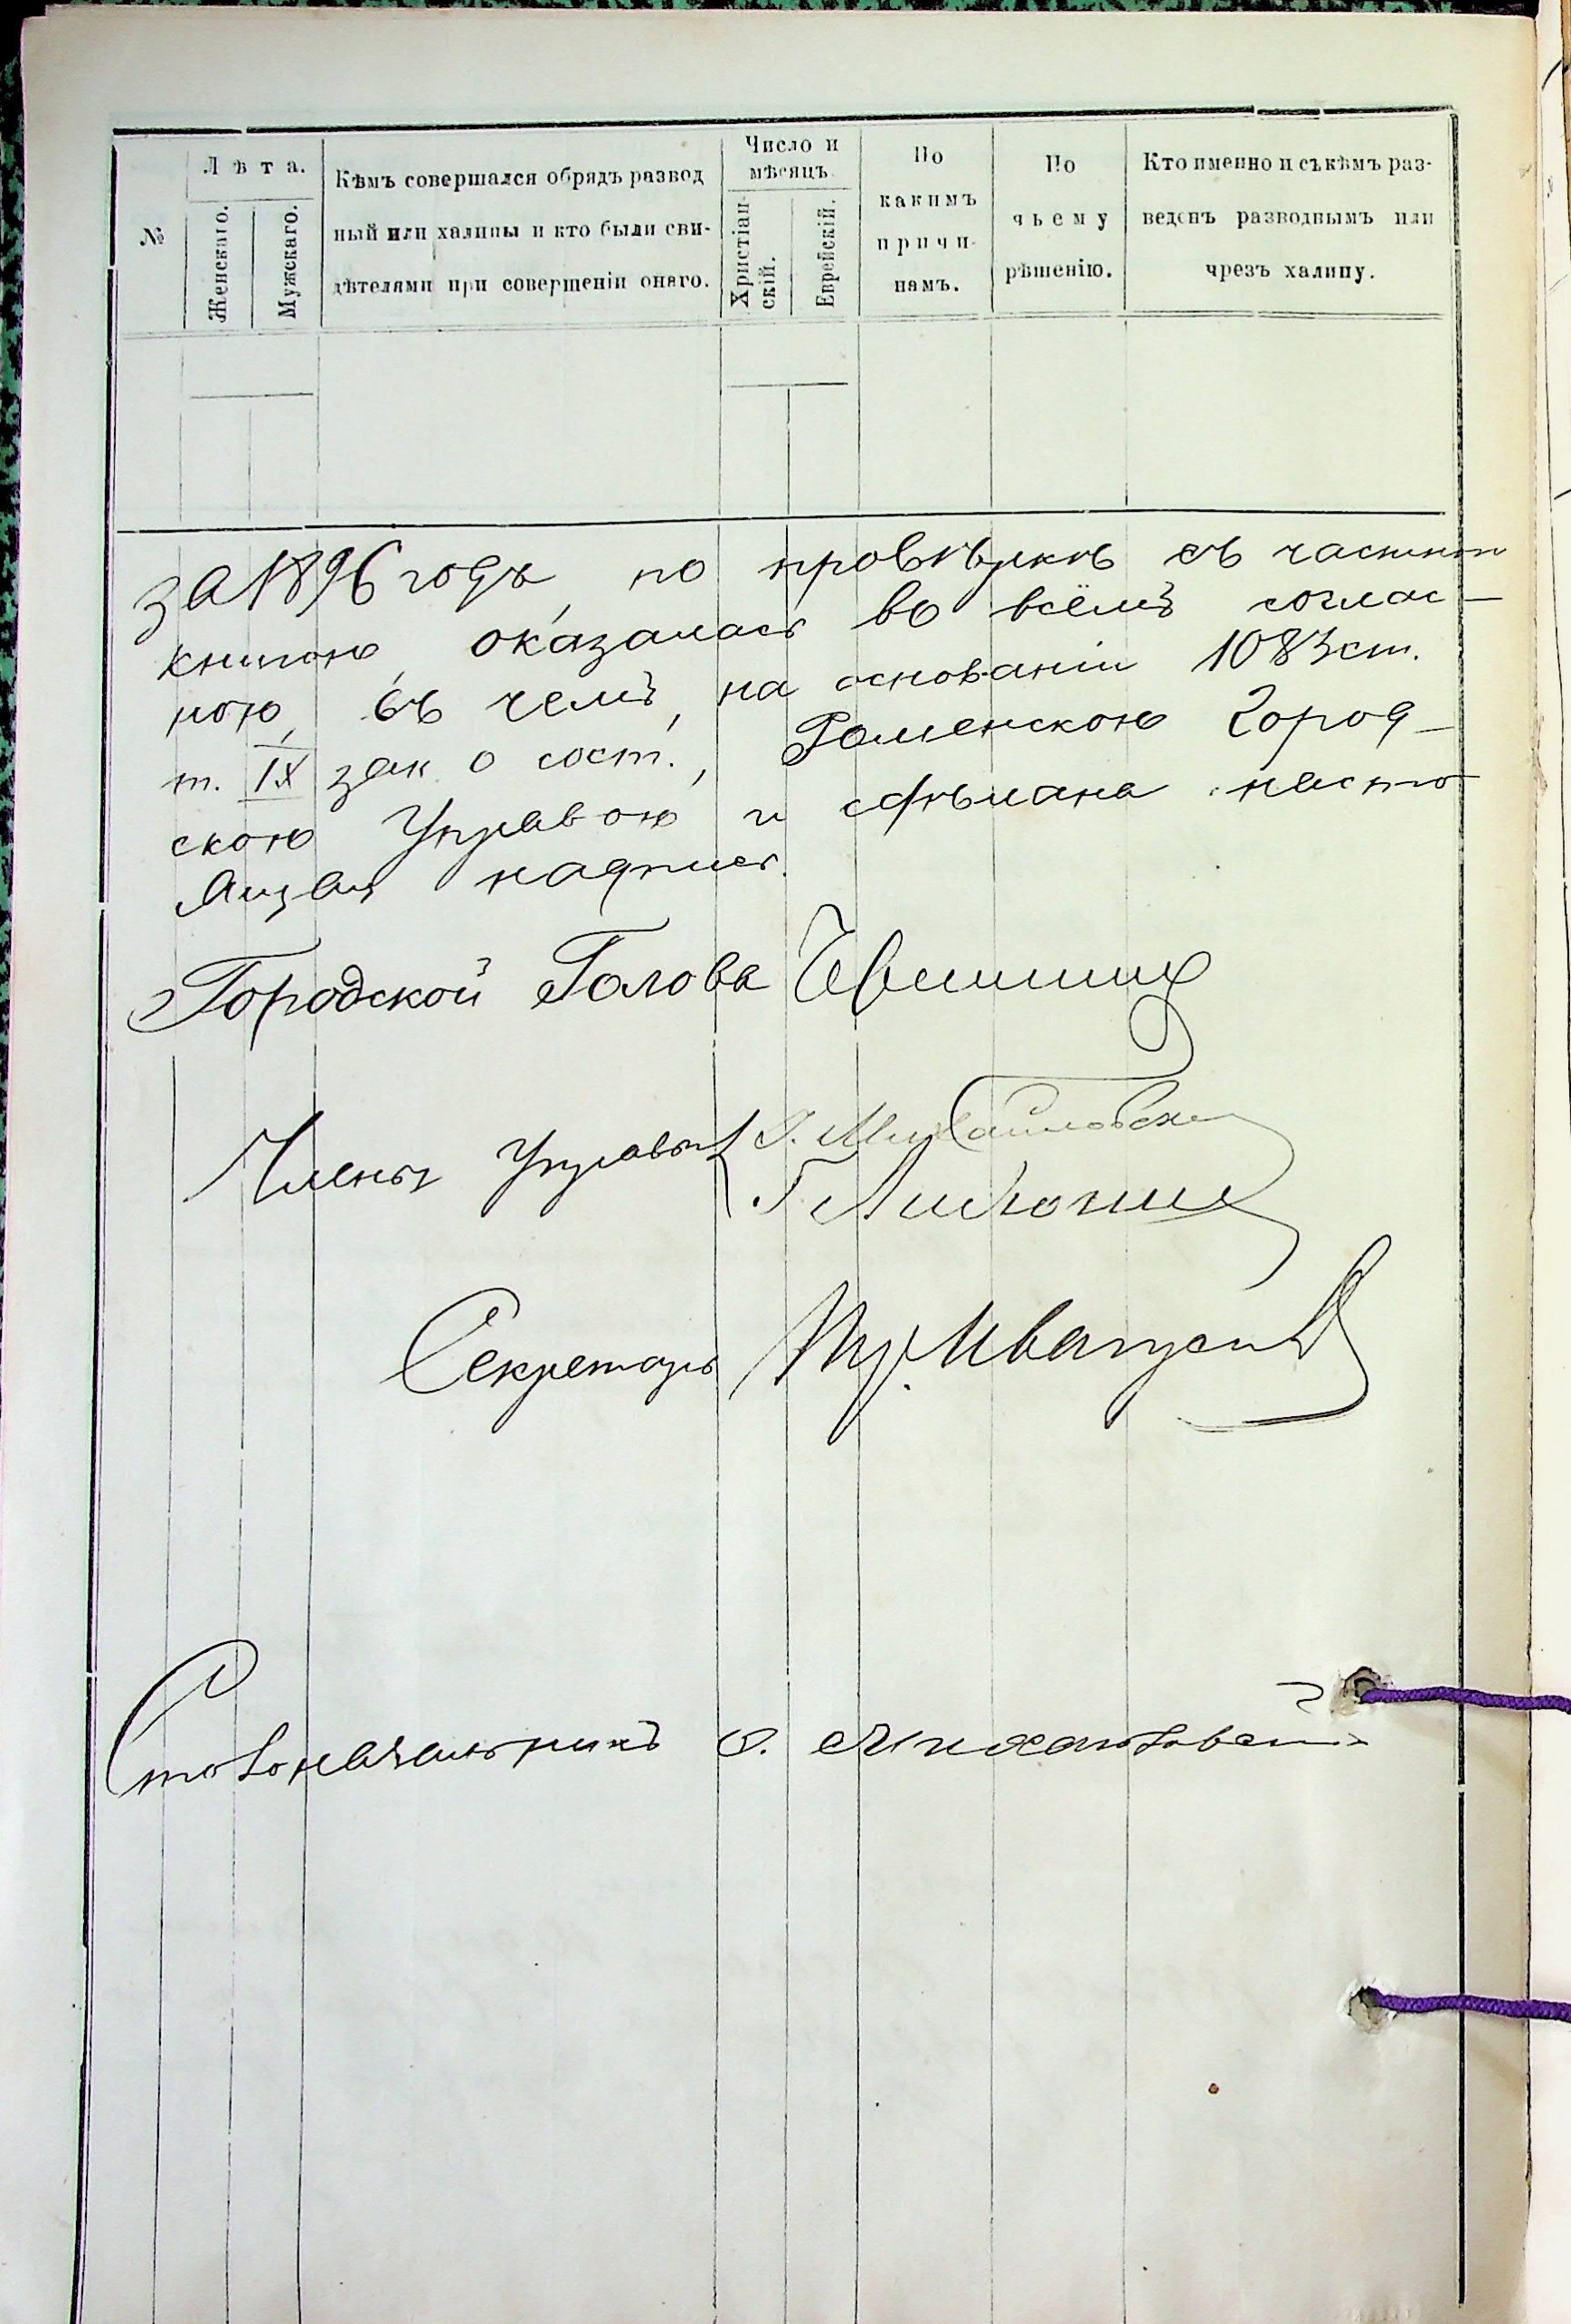 №
Лѣта.
Женскаго.
Мужскаго.
Кѣмъ совершался обрядъ развод
ный или халицы и кто были сви-
дѣтелями при совершеніи онаго.
Число и
мѣсяцъ.
Христіан-
скій.
Еврейскій.
По
какимъ
причи-
намъ.
По
чьему
рѣшенію.
Кто именно и съ кѣмъ раз-
веденъ разводнымъ или
чрезъ халицу.
за 1896 годъ, по провѣркѣ съ частною
книгою, оказалась во всёмъ соглас-
ною, въ чемъ, на основаніи 1083 ст.
т. IX зак. о сост., Роменскою Город-
скою Управою и сдѣлана насто-
ящая надпись.
Городской Голова
Члены Управы Михайловскі
Секретарь
Столоначальникъ